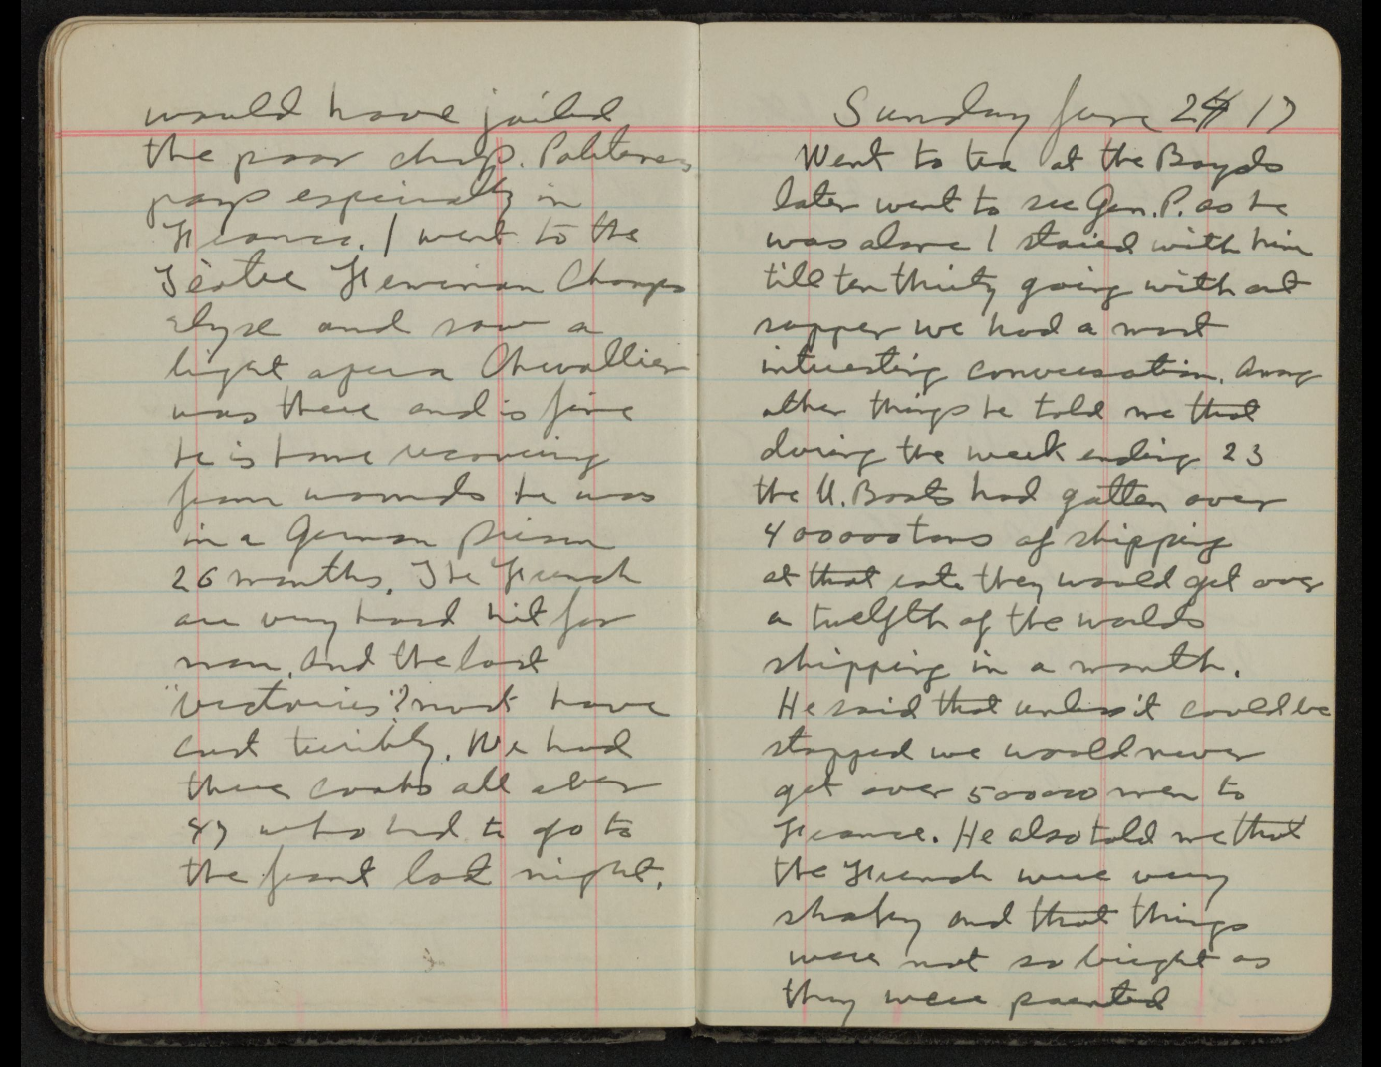 would have jailed
the poor chap. Politeness
pays especially in
France. I went to the
Téatre Champs
Elyse and saw a
light opera Chevallier
was there and is fine
he is home recovering
from wounds he was
in a German prison
26 months. The French
are very hard hit for
men, and the last
"victories"? must have
cost terribly. We had
three cooks all over
47 who had to go to
the front last night.
Sunday June 24 17
Went to tea at the Boyds
later went to see Gen. P. as he
was alone I staied with him
till ten thirty going with out
supper we had a most
interesting conversation. Among
other things he told me that
during the week ending 23
the U. Boats had gotten over
400000 tons of shipping
at that rate they would get over
a twelfth of the worlds
shipping in a month.
He said that unless it could be
stopped we would never
get over 500000 men to
France. He also told me that
the French were very
shaky and that things
were not so bright as
they were painted